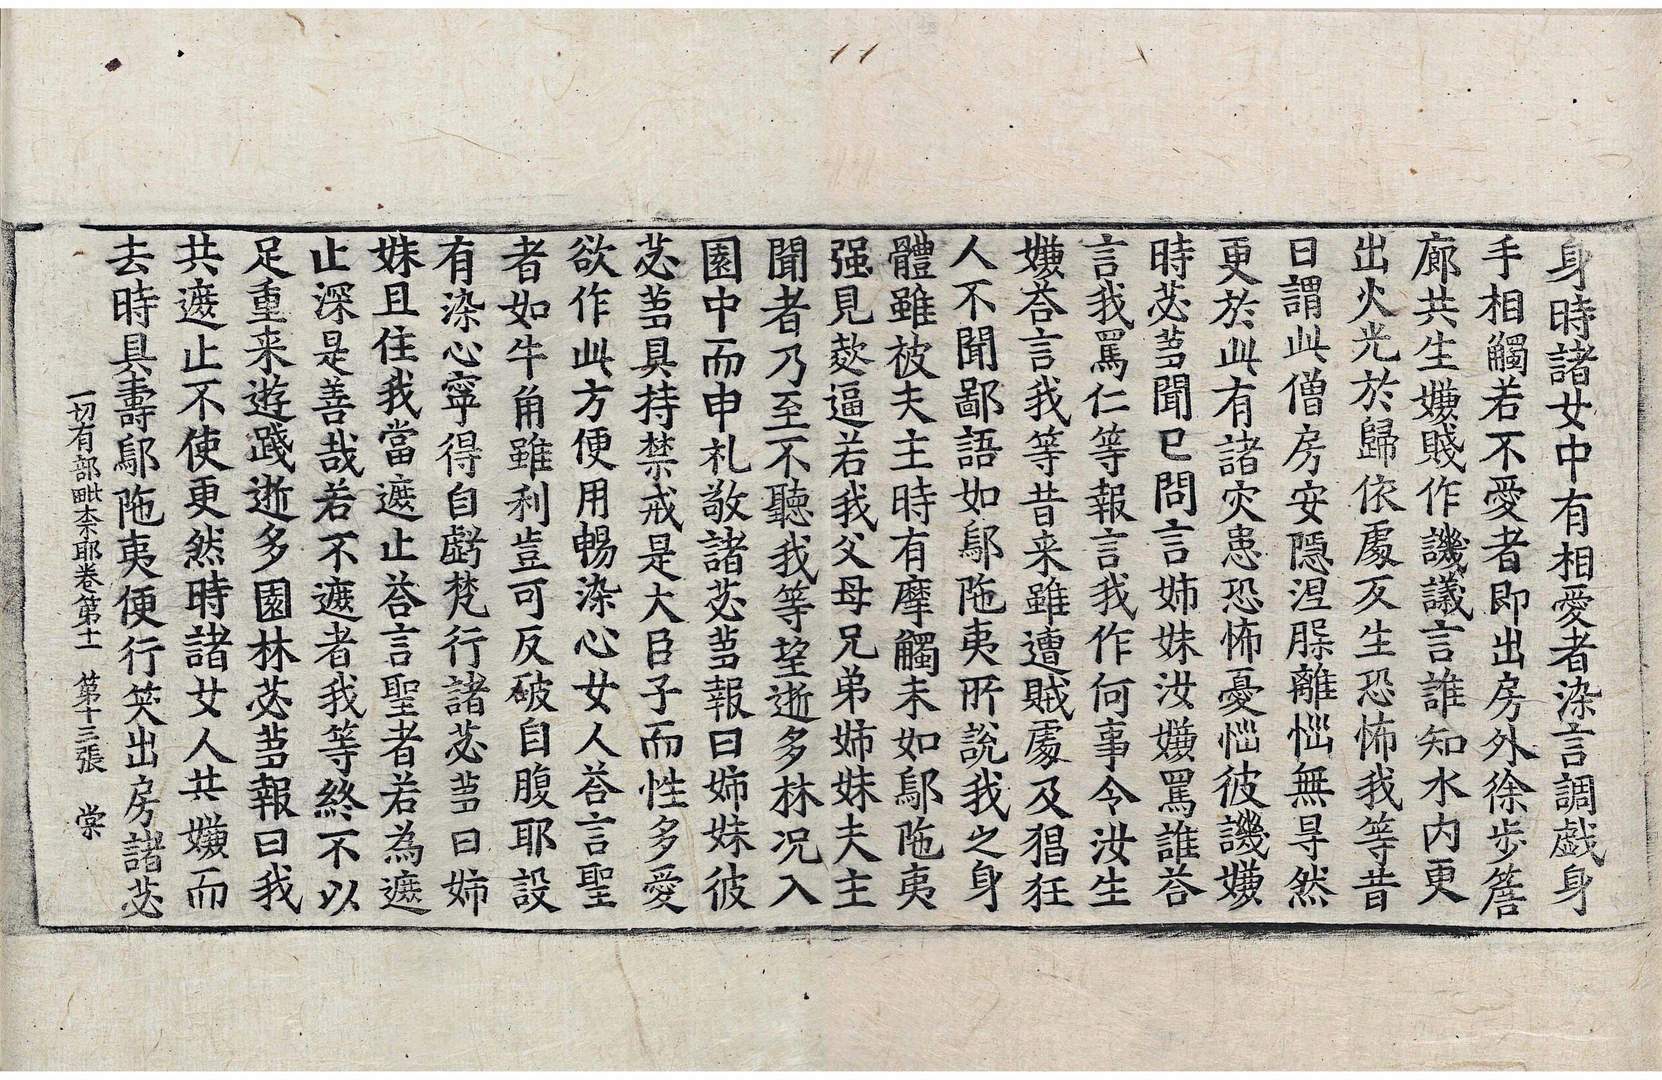 身時諸女中有相愛者染言調戲身
手相觸若不愛者即出房外徐步簷
廊共生嫌賤作譏議言誰知水內更
出火光於歸依處反生恐怖我等昔
日謂此僧房安隱涅槃離惱無㝵然
更於此有諸灾患恐怖憂惱彼譏嫌
時苾蒭聞已問言姉妹汝嫌罵誰荅
言我罵仁等報言我作何事令汝生
嫌荅言我等昔来雖遭賊處及猖狂
人不聞鄙語如鄔陁夷所說我之身
體雖被夫主時有摩觸未如鄔陁夷
强見欻逼若我父母兄弟姉妹夫主
聞者乃至不聽我等望逝多林况入
園中而申札敬諸苾蒭報曰姉妹彼
苾蒭具持禁戒是大臣子而性多愛
欲作此方便用暢染心女人荅言聖
者如牛角雖利豈可反破自腹耶設
有染心寧得自虧梵行諸苾蒭曰姉
妹且住我當遮止荅言聖者若為遮
止深是善哉若不遮者我等終不以
足重来遊踐逝多園林苾蒭報曰我
共遮止不使更然時諸女人共嫌而
去時具壽鄔陁夷便行筞出房諸苾
一切有部毗奈耶卷第十一 第十三張 棠